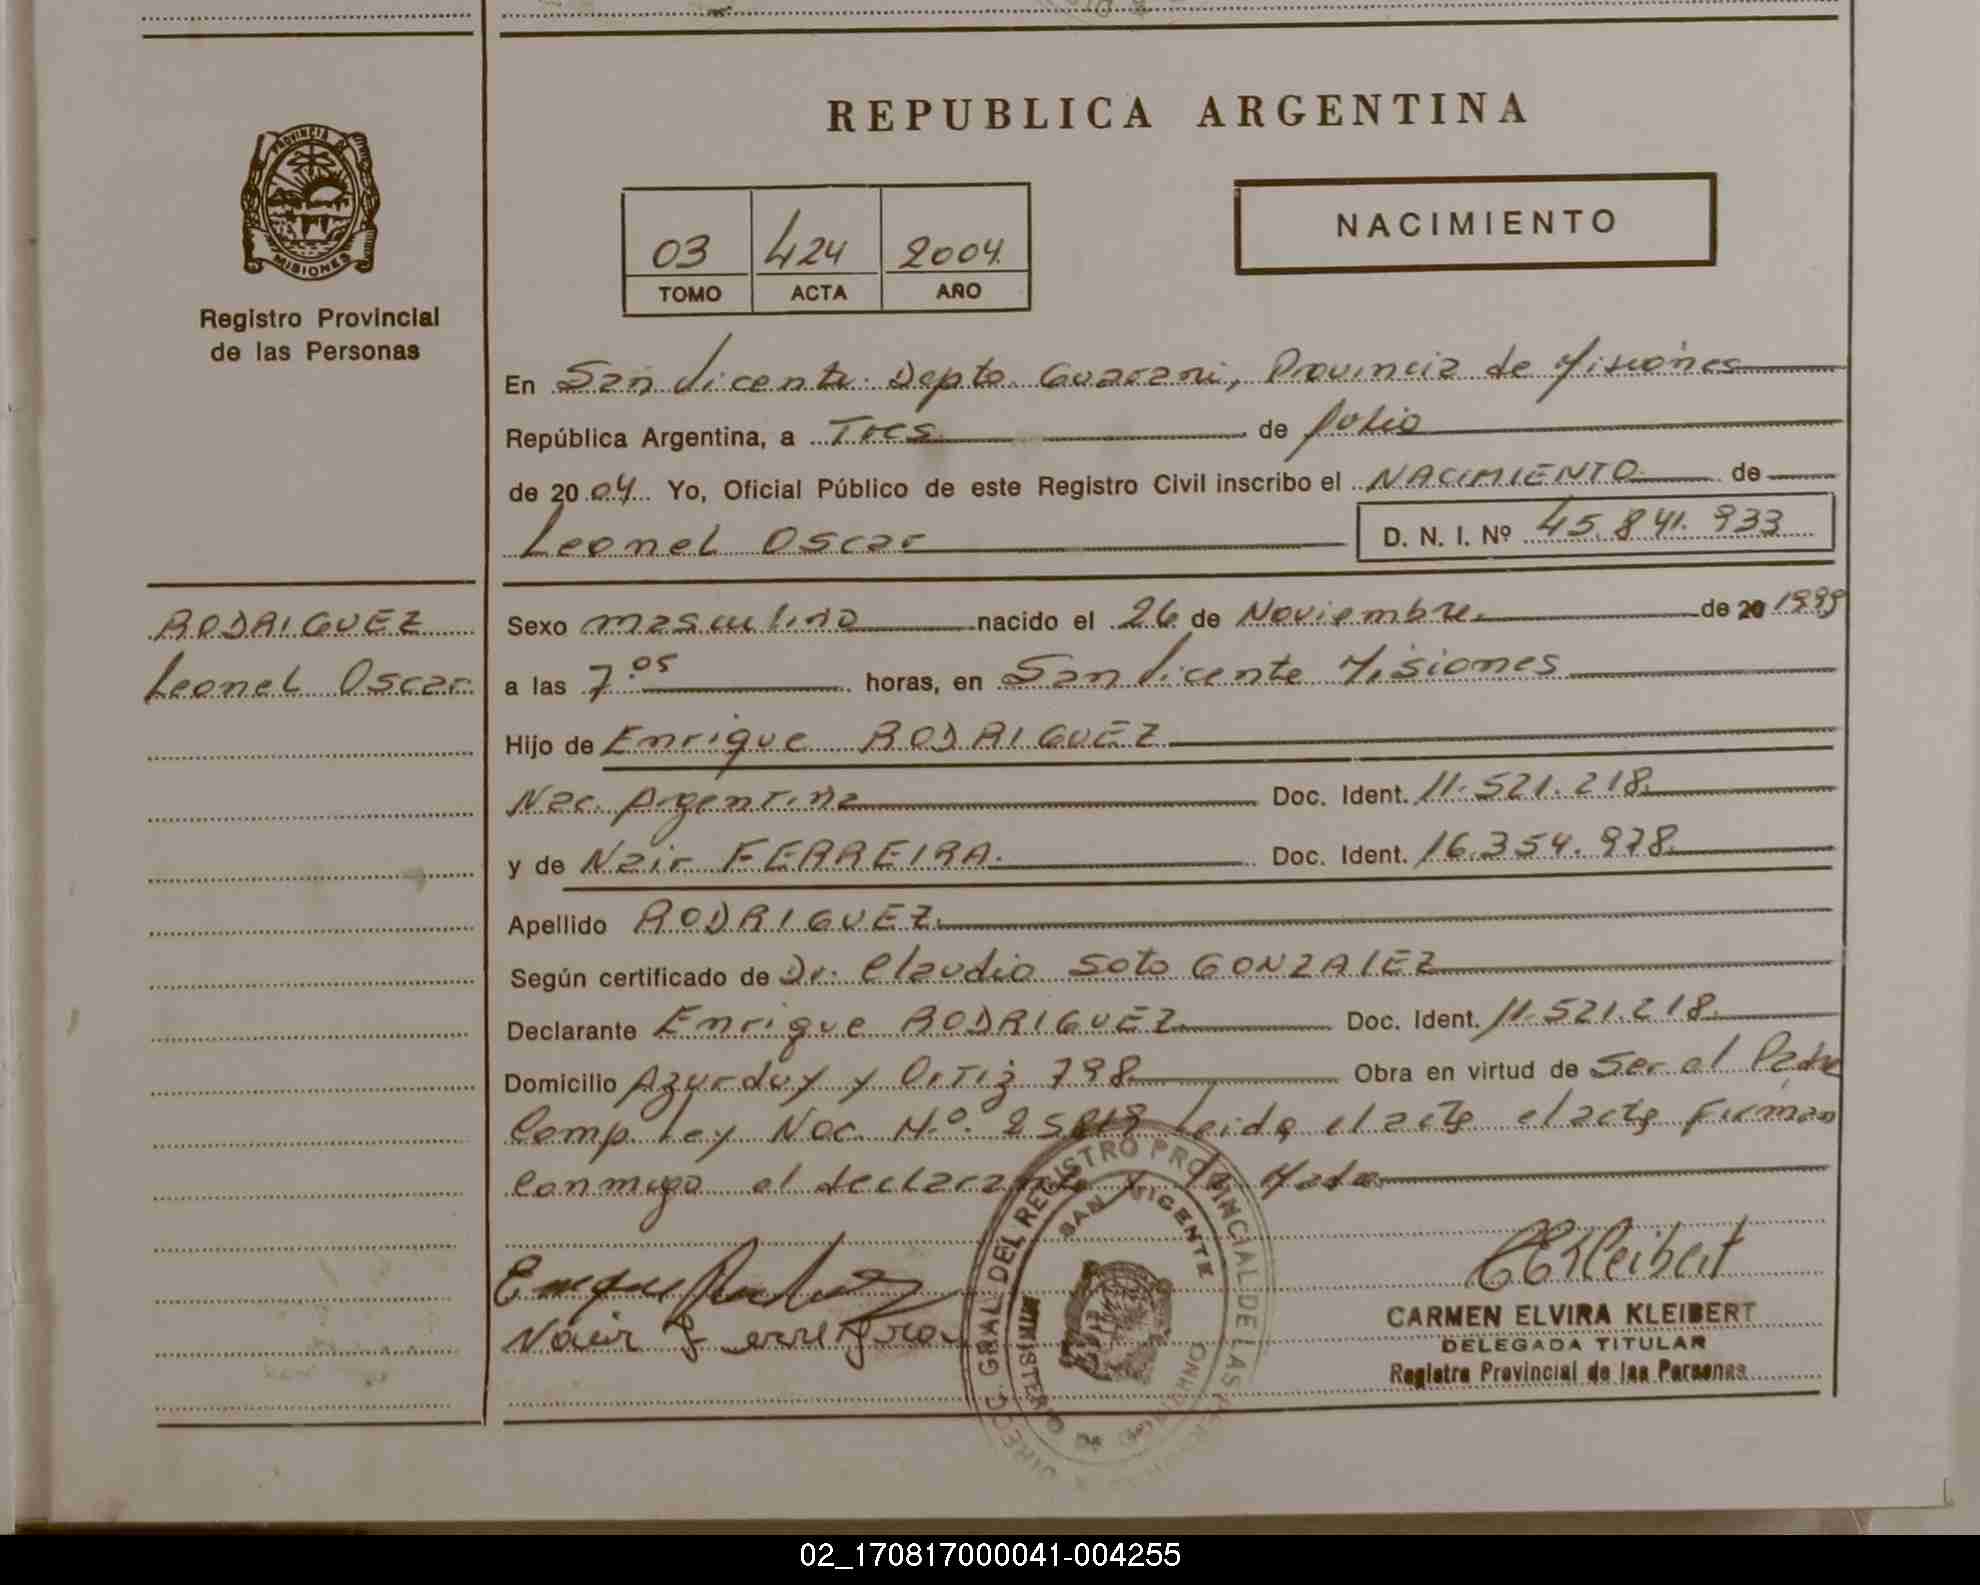 REPUBLICA ARGENTINA
PROVINCIA DE
MISIONES
Registro Provincial
de las Personas
03 424 2004
TOMO ACTA AÑO
NACIMIENTO
En San Vicente Depto Guarani, Provincia de Misiones
República Argentina, a Tres de Julio
de 20 04 Yo, Oficial Público de este Registro Civil inscribo el NACIMIENTO de
Leonel Oscar D. N. I. Nº 45.841.933
RODRIGUEZ
Leonel Oscar
Sexo masculino nacido el 26 de Noviembre de 20 1999
a las 7.05 horas, en San Vicente Misiones
Hijo de Enrique RODRIGUEZ
Nac. Argentina Doc. Ident. 11.521.218
y de Nair FERREIRA. Doc. Ident. 16.354.978
Apellido RODRIGUEZ
Según certificado de Dr. Claudio Soto GONZALEZ
Declarante Enrique RODRIGUEZ Doc. Ident. 11.521.218
Domicilio Azurduy y Ortiz 798 Obra en virtud de Ser el Padre
Comp. Ley Nac. N.º leida el acta el acta firman
Conmigo el declarante y la Madre
Enrique
Nair Ferreira
CEKleibert
CARMEN ELVIRA KLEIBERT
DELEGADA TITULAR
Registro Provincial de las Personas
DIRECC. GRAL. DEL REGISTRO PROVINCIAL DE LAS PERSONAS
SAN VICENTE
MINISTERIO DE GOBIERNO
02_170817000041-004255